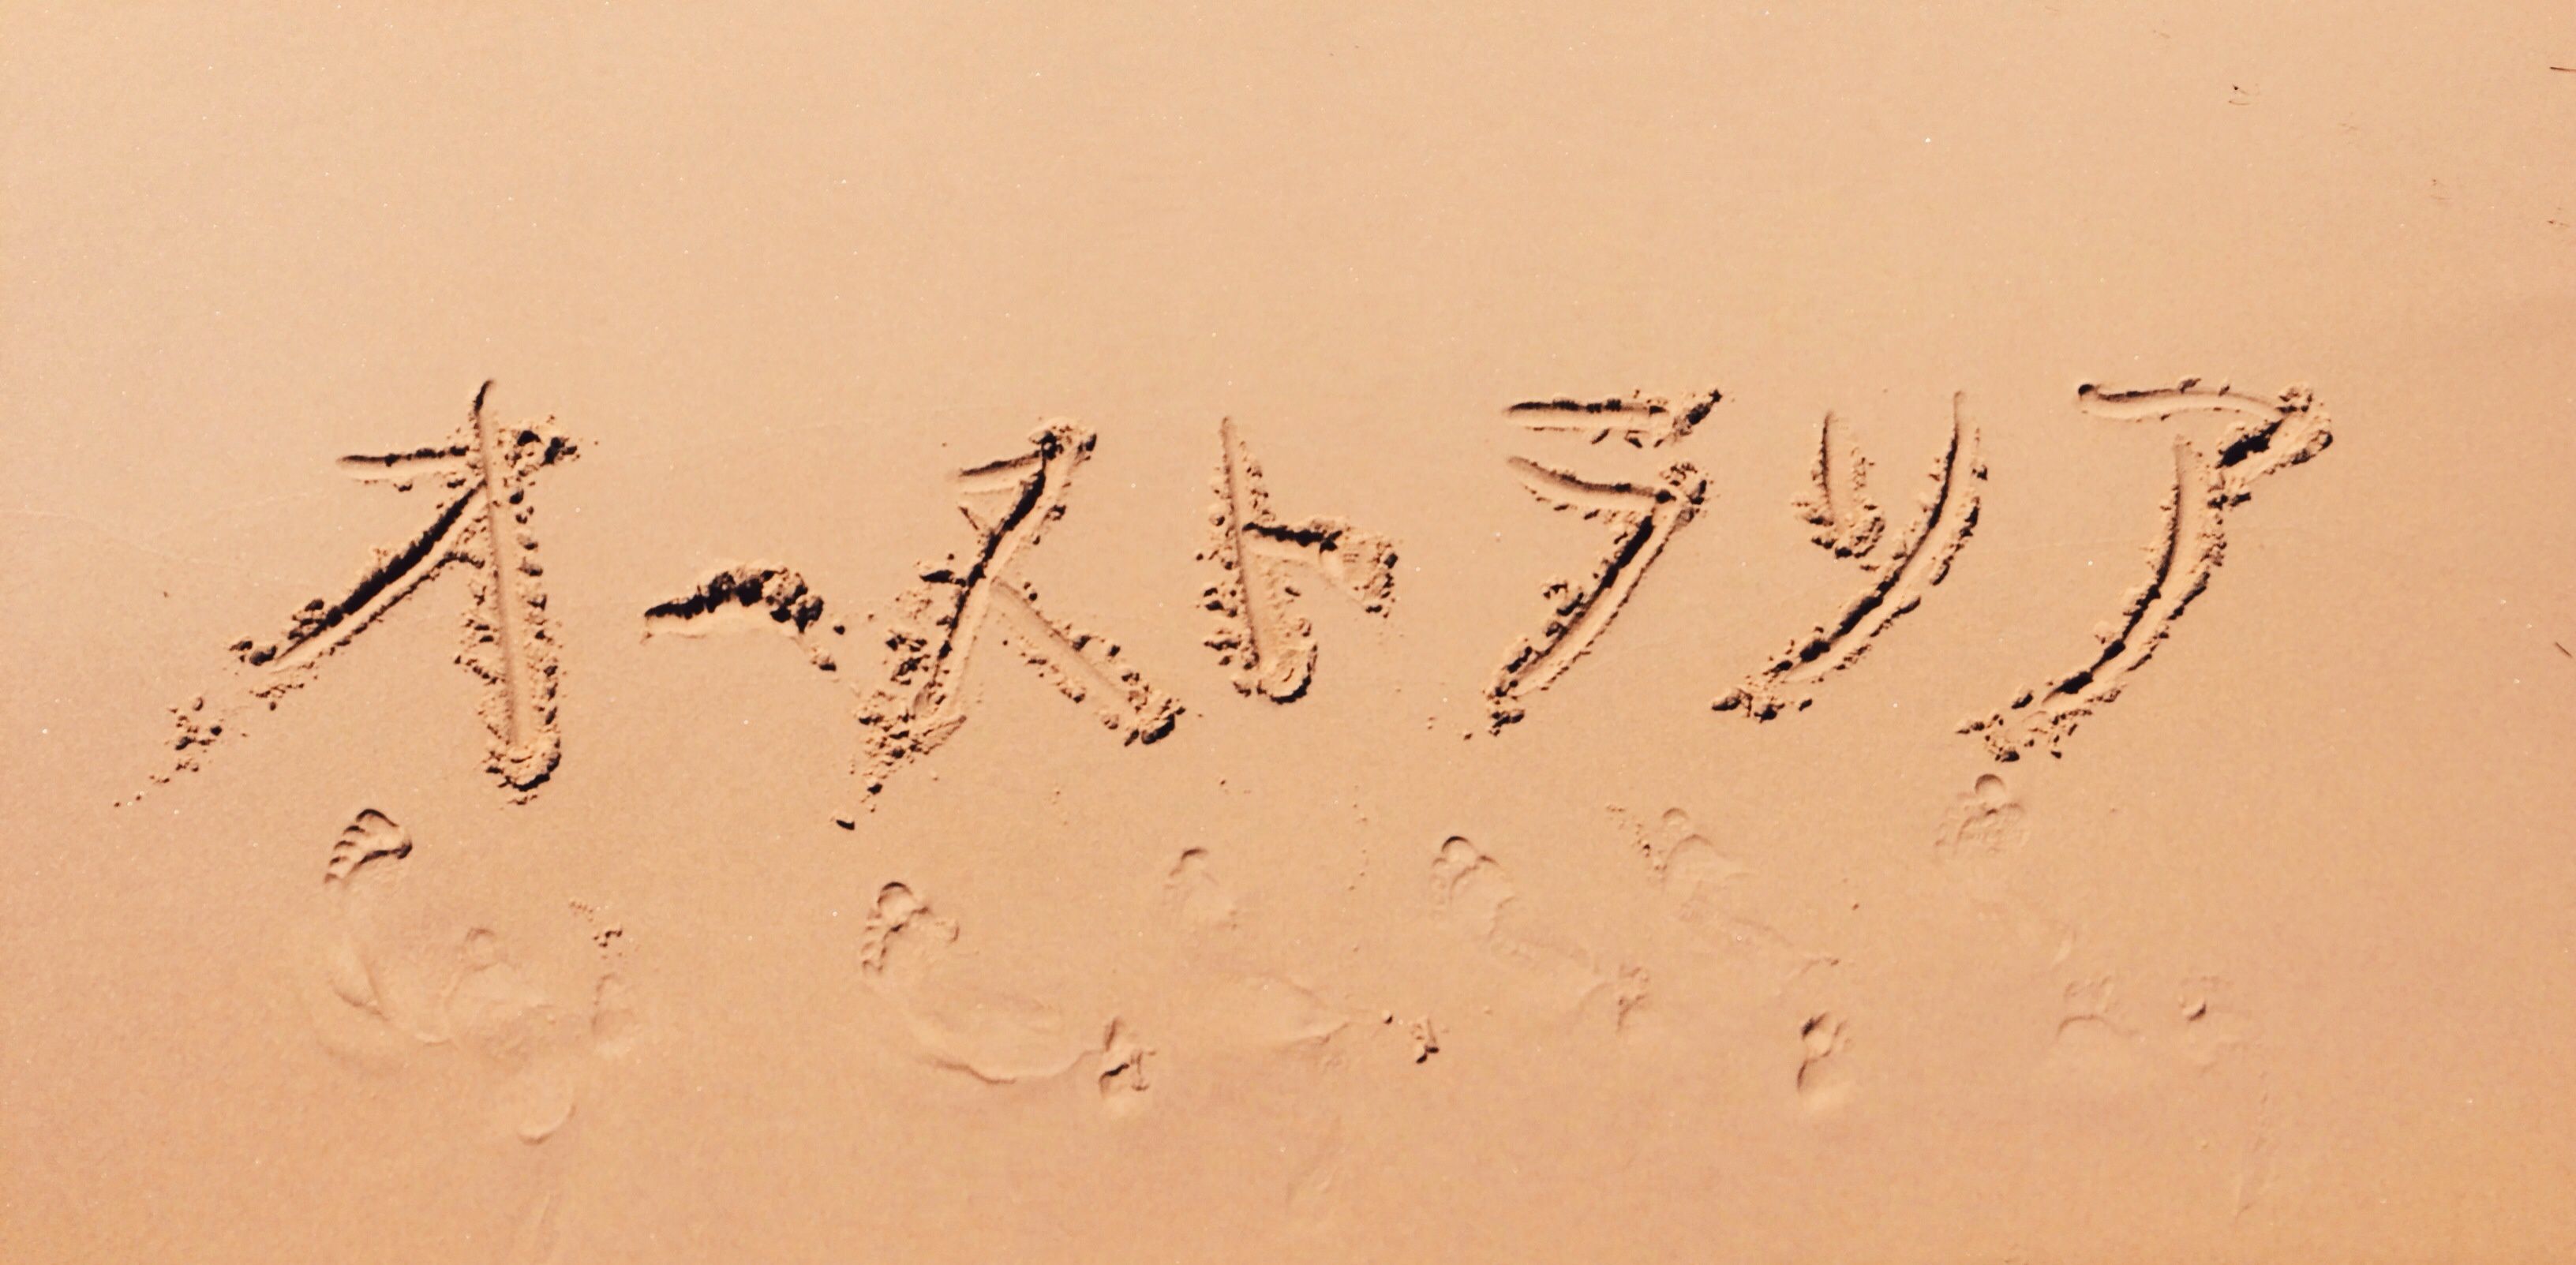 オーストラリア